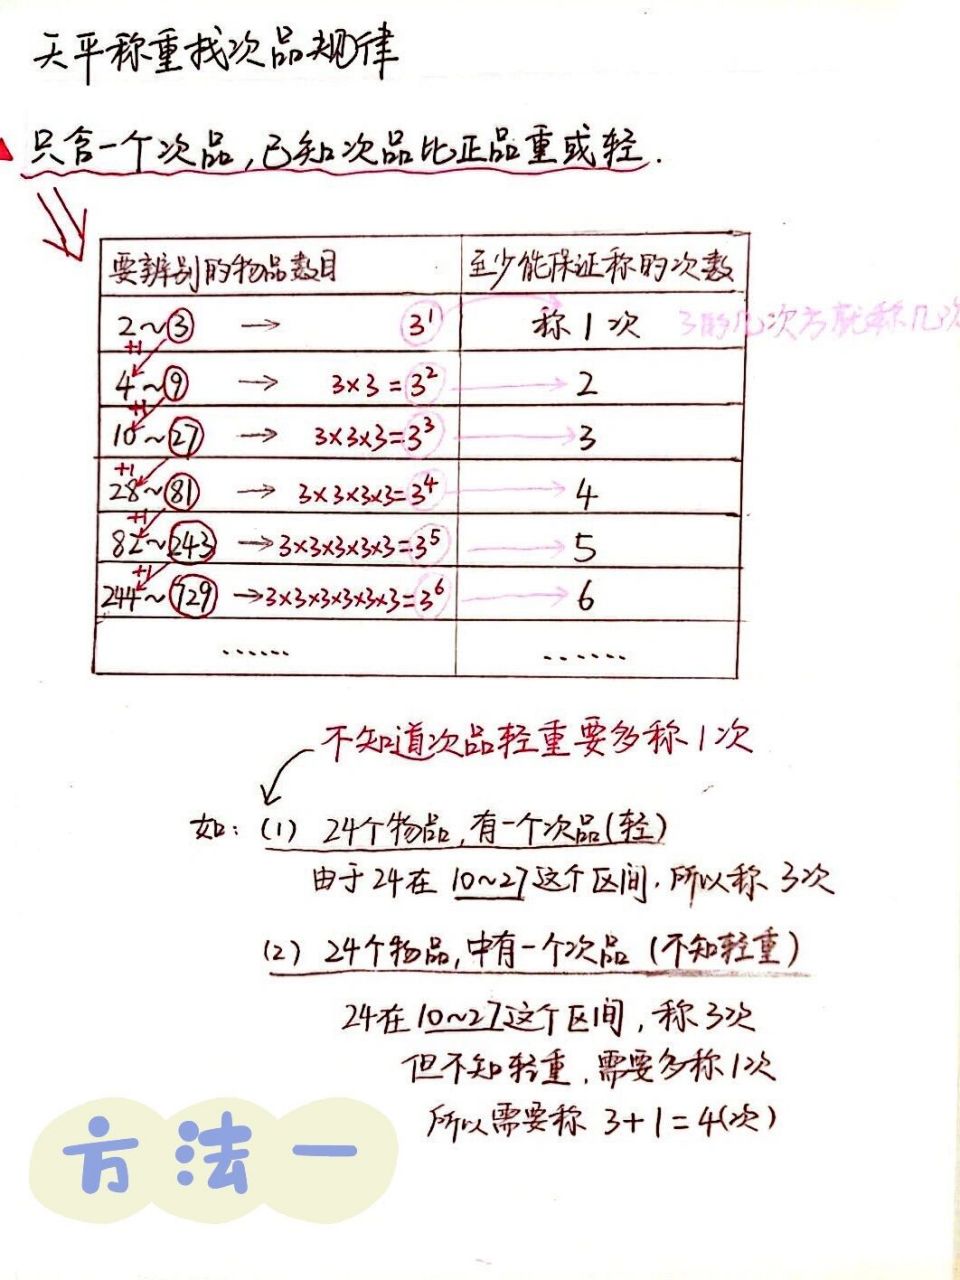 天平称重找次品规律
只含一个次品,已知次品比正品重或轻.
要辨别的物品数目 至少能保证称的次数
2~3 → 3¹ 称1次 3的几次方就称几次
+1
4~9 → 3×3=3² 2
+1
10~27 → 3×3×3=3³ 3
+1
28~81 → 3×3×3×3=3⁴ 4
+1
82~243 → 3×3×3×3×3=3⁵ 5
+1
244~729 → 3×3×3×3×3×3=3⁶ 6
...... ......
不知道次品轻重要多称1次
如: (1) 24个物品,有一个次品(轻)
由于24在10~27这个区间.所以称3次
(2) 24个物品,中有一个次品(不知轻重)
24在10~27这个区间,称3次
但不知轻重,需要多称1次
所以需要称 3+1=4(次)
方法一